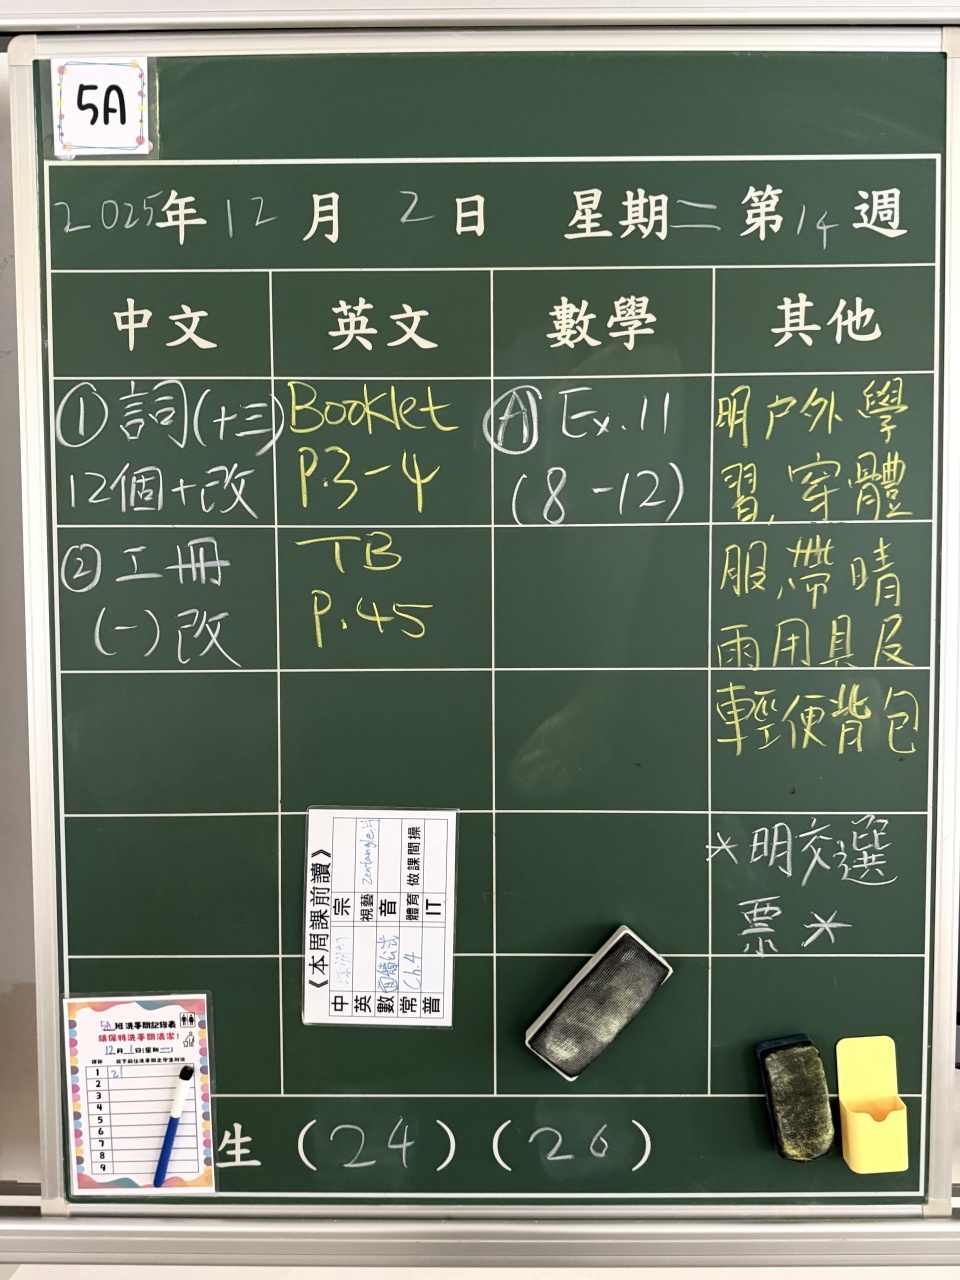 5A
2025年12月2日 星期二 第14週
中文 英文 數學 其他
①詞(十三)
12個+改
②工冊
(一)改
Booklet
P.3-4
TB
P.45
Ⓐ Ex.11
(8-12)
明户外學
習,穿體
服,帶晴
雨用具及
輕便背包
*明交選
票*
《本周課前讀》
中
宗
英
視藝 Zentangle片
數 面積公式
音
常 Ch.4
體育 做課間操
普
IT
5A班洗手間記錄表
請保持洗手間清潔!
12月1日(星期一)
1 21
2
3
4
5
6
7
8
9
生 (24) (26)